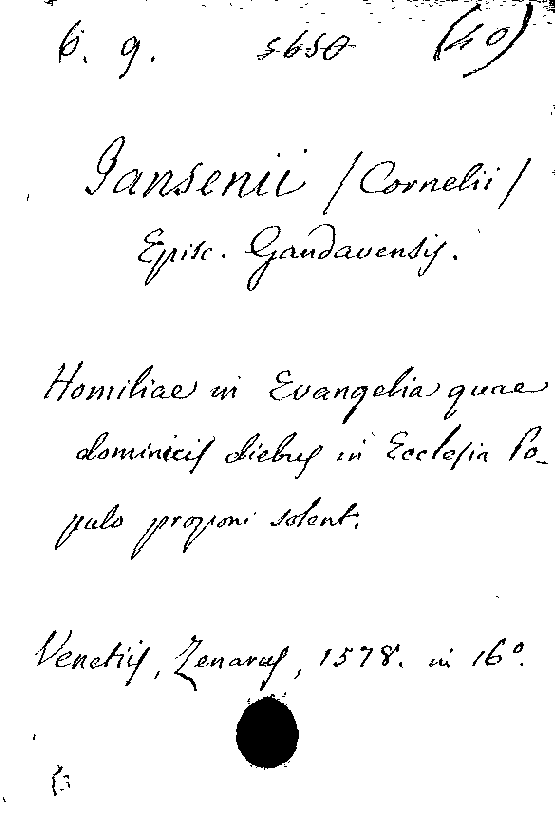 6. 9. 5650 (40)
Jansenii / Cornelii /
Episc. Gandavensis.
Homiliae in Evangelia quae
dominicis diebus in Ecclesia Po-
pulo proponi solent.
Venetiis, Zenarus, 1578. in 16º.